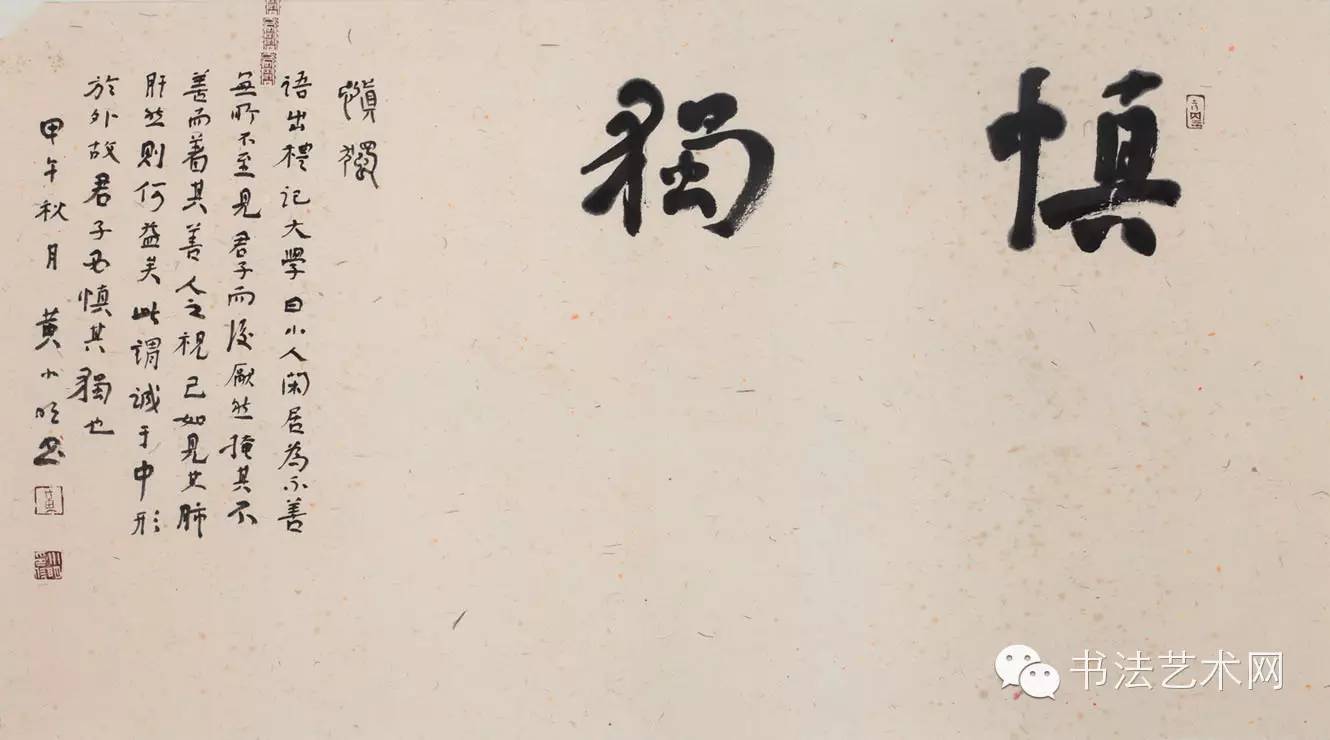 慎獨
慎獨
語出禮記大學曰小人閑居為不善
無所不至見君子而後厭然揜其不
善而著其善人之視己如見其肺
肝然則何益矣此謂誠于中形
於外故君子必慎其獨也
甲午秋月 黃小明書
书法艺术网